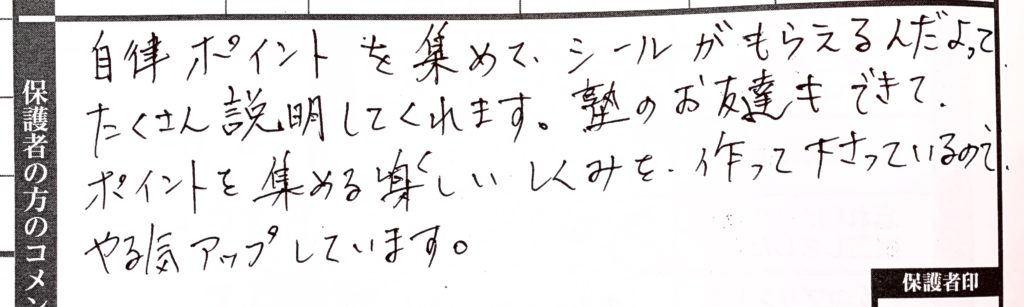 保護者の方のコメン
自律ポイントを集めて、シールがもらえるんだよって
たくさん説明してくれます。塾のお友達もできて、
ポイントを集める楽しいしくみを、作って下さっているので、
やる気アップしています。
保護者印